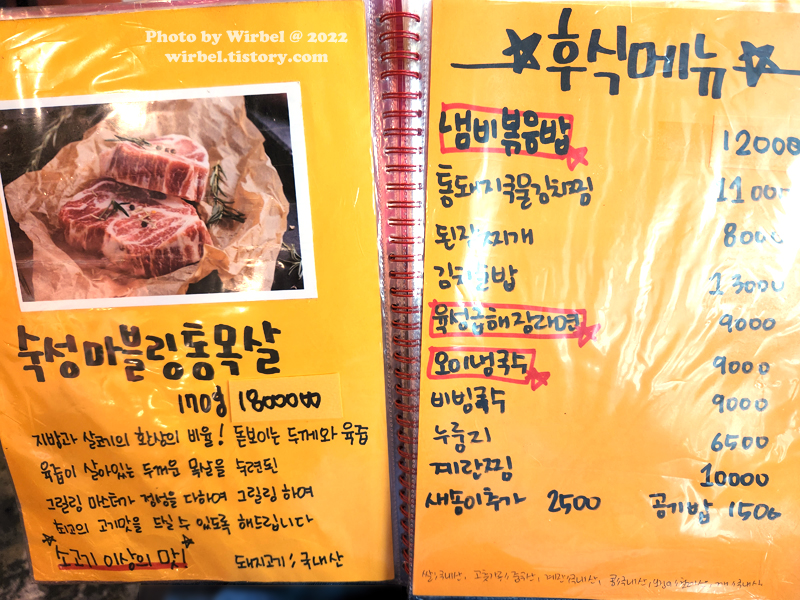 Photo by Wirbel @ 2022
wirbel.tistory.com
숙성마블링통목살
170g
지방과 살코기의 환상의 비율! 돋보이는 두께와 육즙
육즙이 살아있는 두꺼운 목살을 숙련된
그릴링 마스터가 정성을 다하여 그릴링하여
최고의 고기맛을 드실 수 있도록 해드립니다
소고기 이상의 맛!
돼지고기: 국내산
후식메뉴
냄비볶음밥 12000
통돼지국물김치찜
된장찌개 8000
13000
9000
오이냉국수 9000
비빔국수 9000
누룽지 6500
계란찜 10000
새송이추가 2500 공기밥